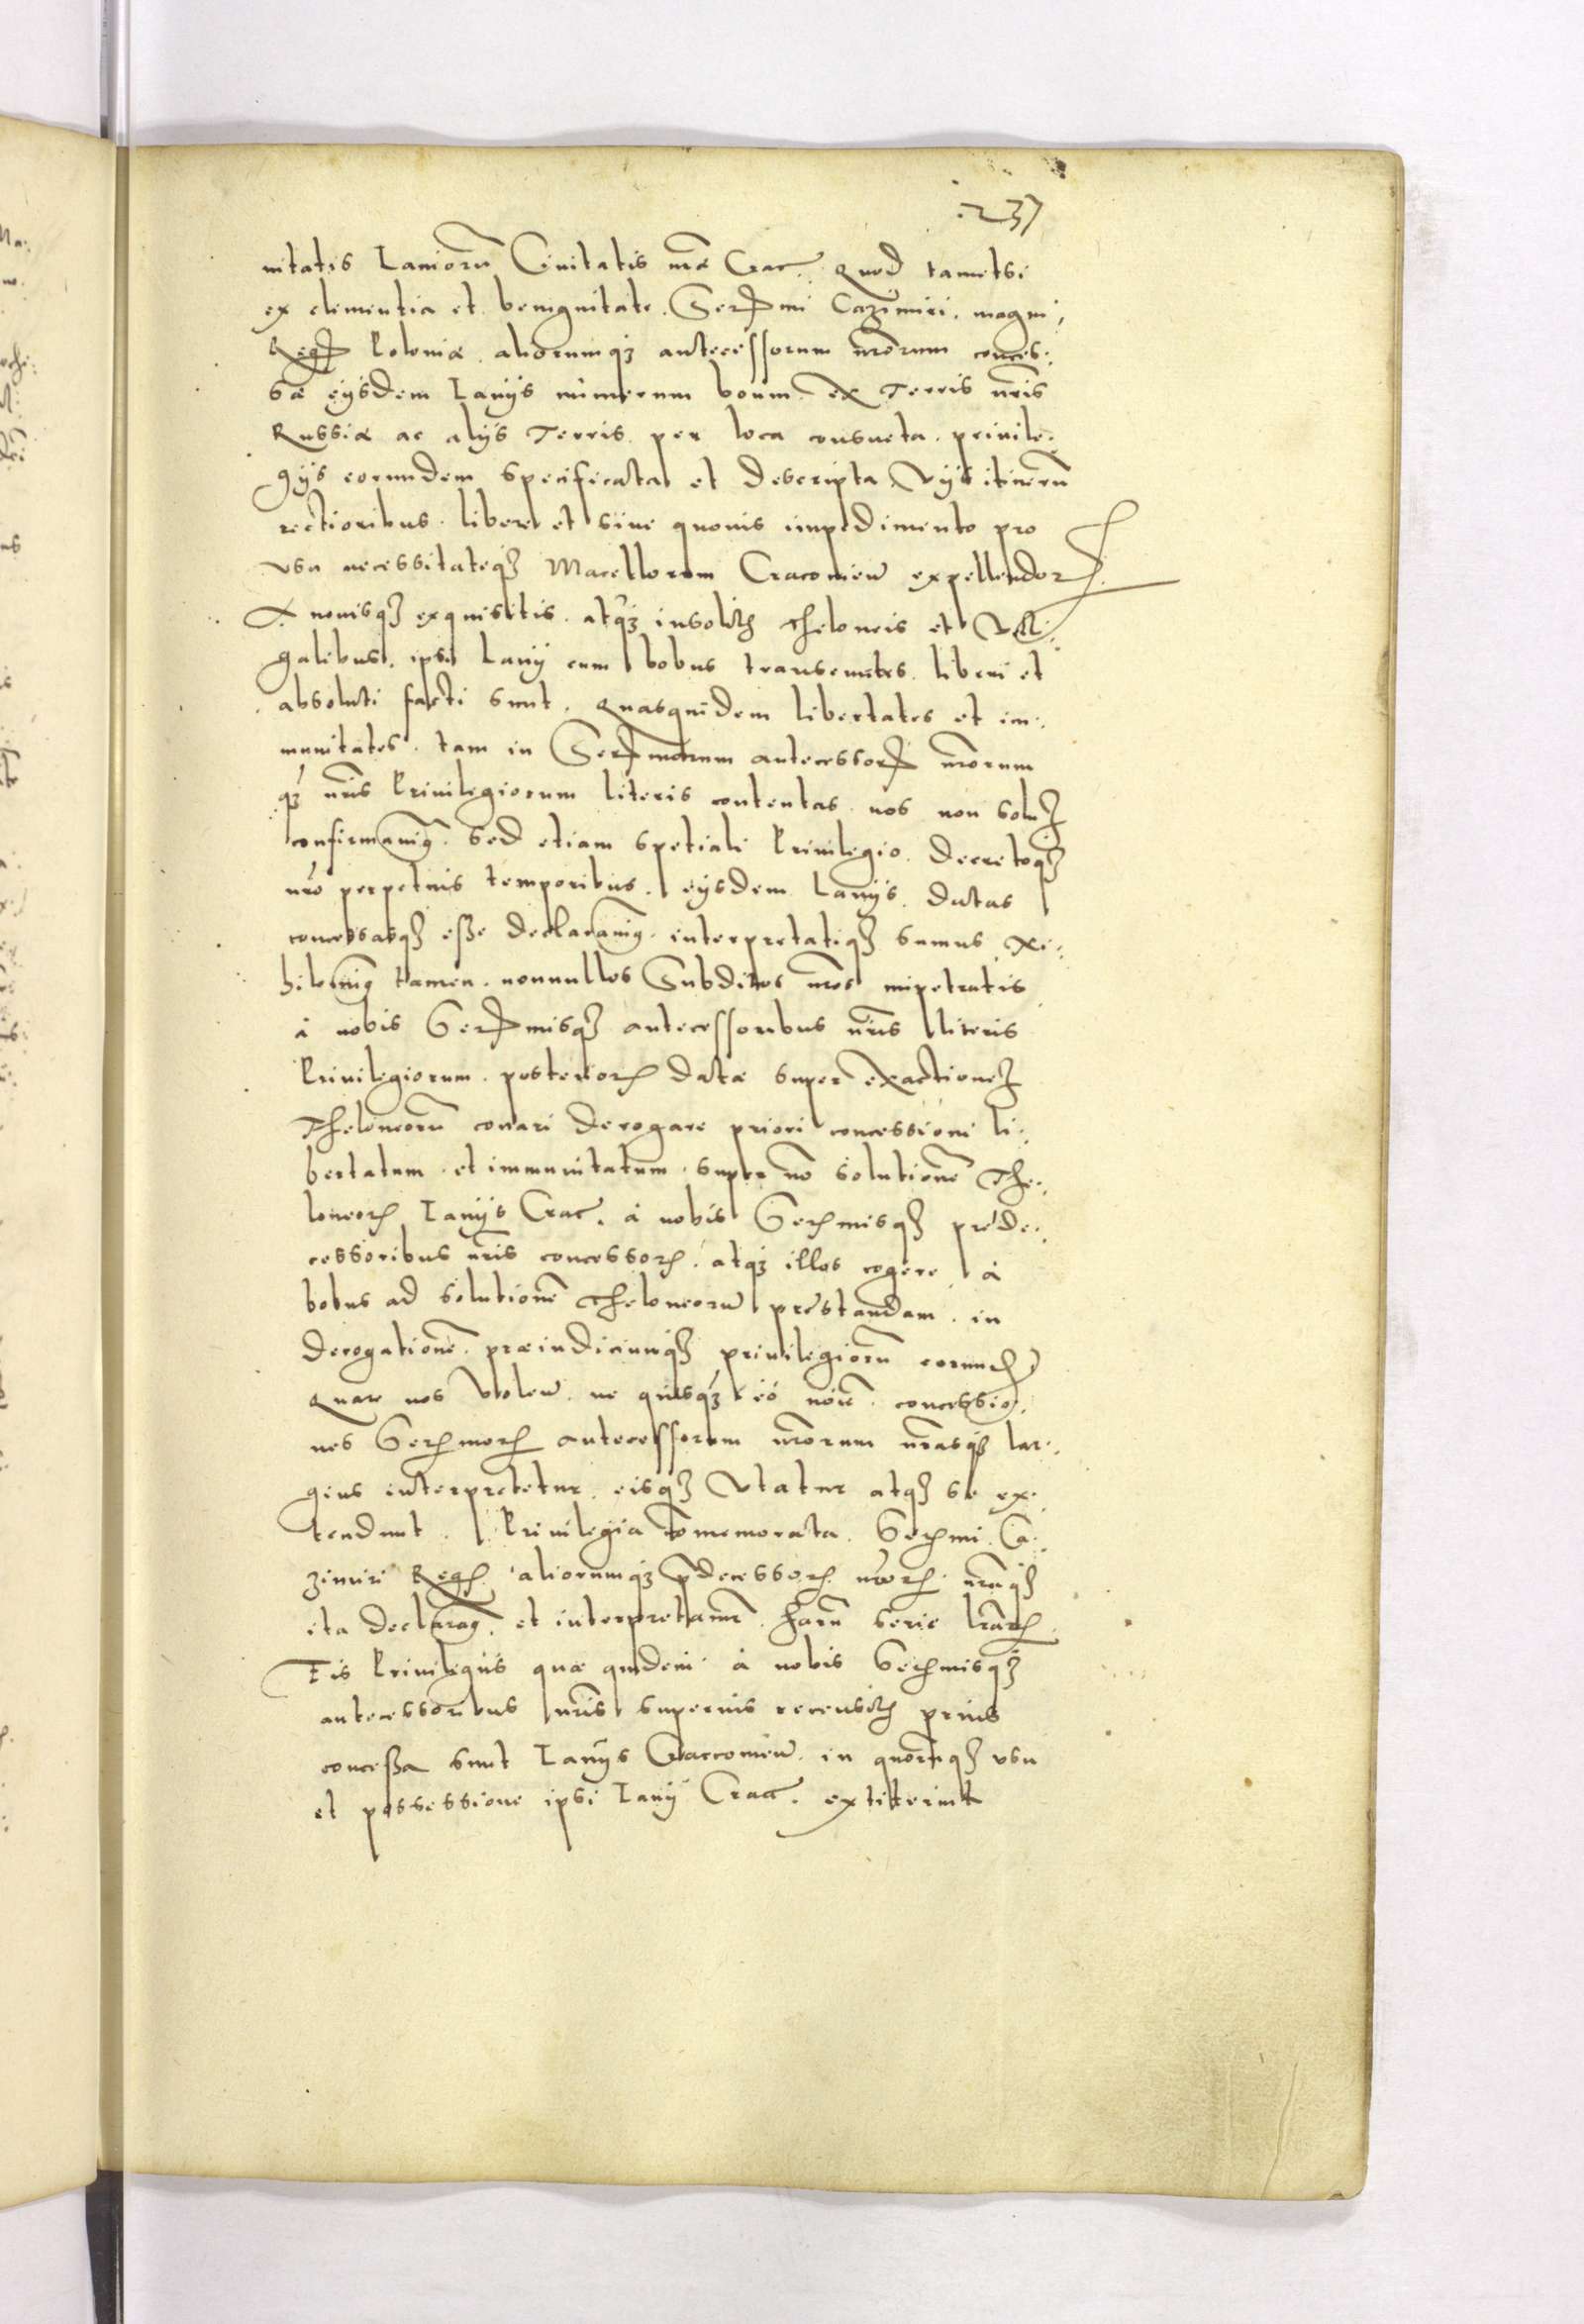 237
nitatis Laniorū Ciuitatis nræ Crac. Quod tametsi
ex clementia et benignitate. Serᵐⁱ Cazimiri. magni,
Regꝭ Poloniæ. aliorumqꝫ antecessorum nrorum conces:
sæ eysdem Lanijs numerum boum. ex Terris nris
Russiæ ac alijs Terris. per loca consueta. priuile:
gijs eorundem specificata et descripta vijs itinerū
rectioribus. libere et sine quouis impedimento pro
vsu necessitateqꝫ Macellorum Cracovien̄ expellendoꝝ.
A nouisqꝫ exquisitis. atqꝫ insolitꝭ Theloneis et Vecti:
galibus. ipsi Lanij cum bobus transeuntes. liberi et
absoluti facti sunt. Quasquidem libertates et im:
munitates. tam in Serꝭmorum antecessoꝝ nrorum
qꝫ nris Priuilegiorum literis contentas. nos non soluꝫ
confirmauimꝰ. sed etiam spetiali Priuilegio. Decretoqꝫ
nro perpetuis temporibus. eysdem Lanijs. datas
concessasqꝫ esse declarauimꝰ. interpretatiqꝫ sumus. Ni:
hilominꝰ tamen. nonnullos Subditos nros impetratis
à nobis Serꝭmisqꝫ antecessoribus nris literis
Priuilegiorum. posterioꝝ datæ super exactioneꝫ
Theloneorū conari derogare priori concessioni li:
bertatum. et immunitatum. super nō solutionē The:
loneoꝝ Lanijs Crac. à nobis Serꝭmisqꝫ præde:
cessoribus nris concessoꝝ. atqꝫ illos cogere. à
bobus ad solutionē Theloneorū præstandam. in
derogationē. præiudiciumqꝫ priuilegiorū eorundē
Quare nos volen̄. ne quisqꝫ eó noīe. concessio:
nes Serꝭmoꝝ antecessorum nrorum nrasqꝫ lar:
gius interpretetur. eisqꝫ vtatur atqꝫ se ex:
tendunt. Priuilegia cōmemorata. Serꝭmi. Ca:
zimiri Regꝭ. aliorumqꝫ p̄decessoꝝ nroꝝ. nraqꝫ
ita declaramꝰ. et interpretamur. harū serie lraꝝ.
Eis Priuilegijs quæ quidem à nobis Serꝭmisqꝫ
antecessoribus nris superius recensitꝭ prius
concessa sunt Lanijs Craccovien̄. in quorūqꝫ vsu
et possessione ipsi Lanij Crac. extiterint